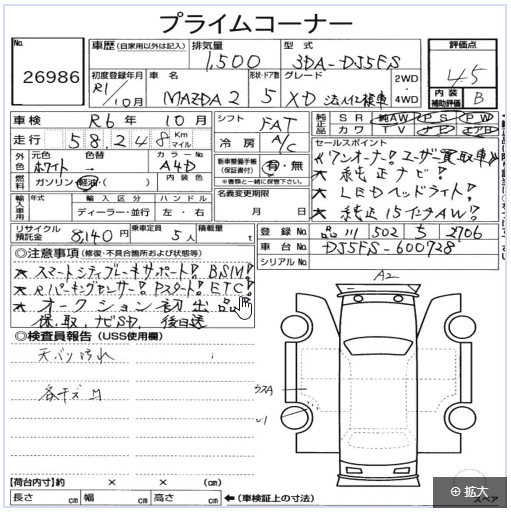 プライムコーナー
No. 26986
車歴 (自家用以外は記入) 排気量 1,500 型式 3DA-DJ5FS 評価点 4.5
初度登録年月 R1/10月 車名 MAZDA2 形状・ドア数 5 グレード XD 2WD・4WD 内装補助評価 B
車検 R6年10月 シフト FAT 純正品 SR 純AW PS PW
カワ TV ナビ エアB
走行 58,248 Km マイル 冷房 A/C セールスポイント
《ワンオーナー!ユーザー買取車》
外色 元色 ホワイト 色替 → カラーNo. A4D
新車整備手帳(保証書付) 有・無
※書類と一緒に保管下さい。
★ 純正ナビ!
燃料 ガソリン・軽油・( ) 内装色
名義変更期限 月 日
★ LEDヘッドライト!
輸入車用 年式 輸入区分 ディーラー・並行 ハンドル 左・右
★ 純正15インチAW!
リサイクル預託金 8,140円 乗車定員 5人 積載量 t
登録No. 品川 502 5 2706
車台No. DJ5FS-600728
シリアルNo.
◎注意事項(修復・不具合箇所および状態等)
★ スマートシティブレーキサポート! BSM!
★ Rパーキングセンサー! Pスタート! ETC!
★ オークション初出品
保、取、ナビSD、後日送
◎検査員報告(USS使用欄)
天バリ汚れ
A2
【荷台内寸】約 × × (cm)
長さ cm 幅 cm 高さ cm ←(車検証上の寸法)
スペア
拡大